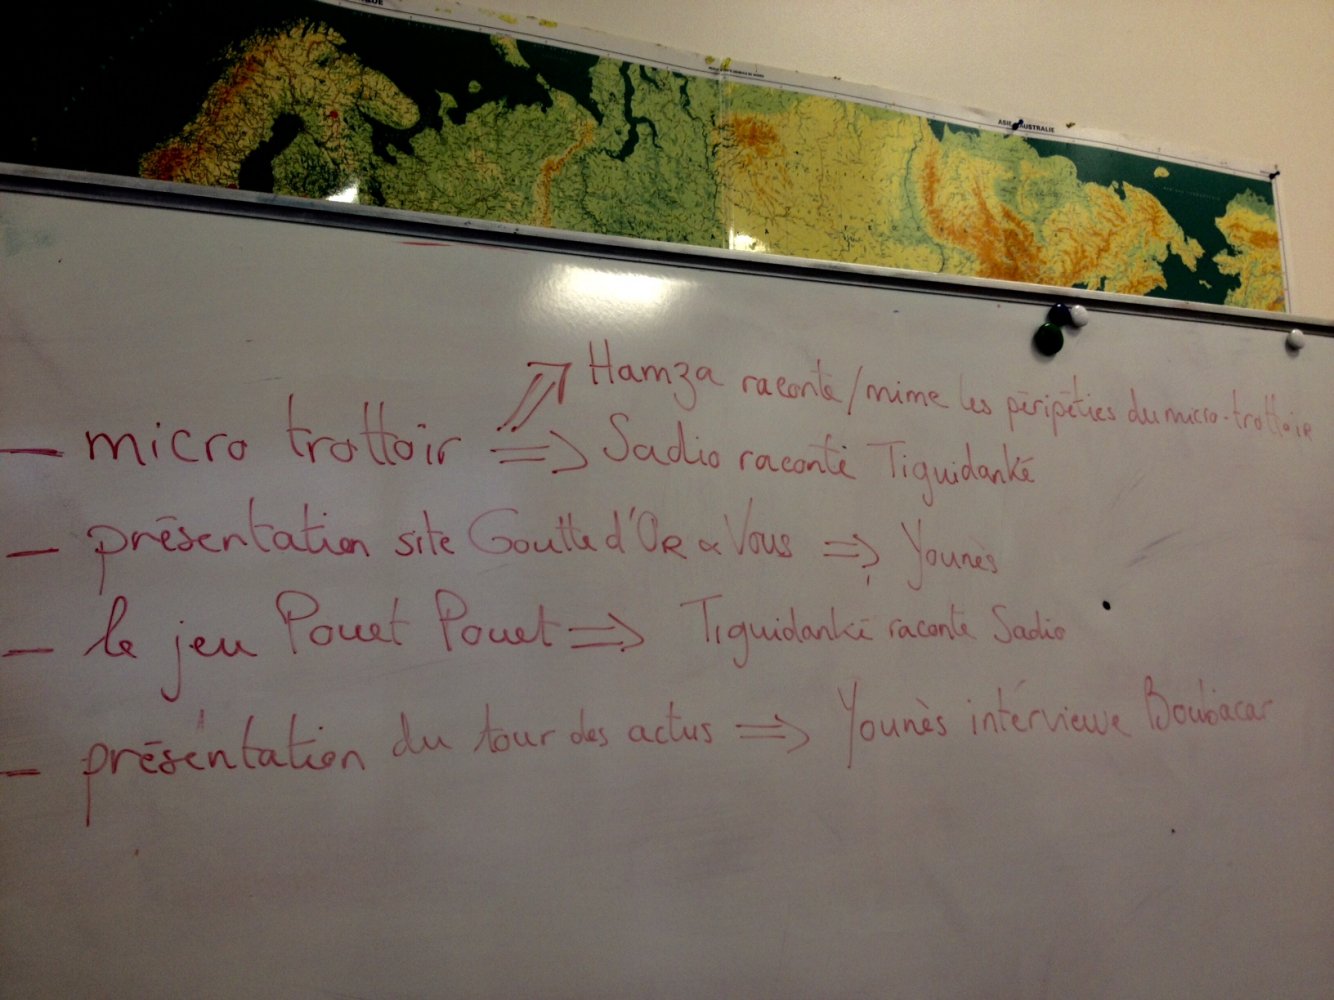 ASIE AUSTRALIE
Hamza raconte/mime les péripéties du micro-trottoir
- micro trottoir => Sadio raconte Tiguidanké
- présentation site Goutte d'Or & Vous => Younès
- le jeu Pouet Pouet => Tiguidanké raconte Sadio
- présentation du tour des actus => Younès interviewe Boubacar